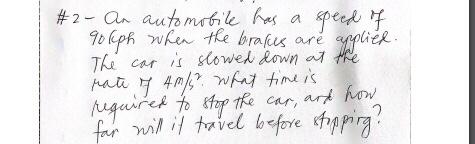 #2- An automobile has a speed of
90kph when the brakes are applied.
The car is slowed down at the
rate of 4m/s². What time is
required to stop the car, and how
far will it travel before stopping?